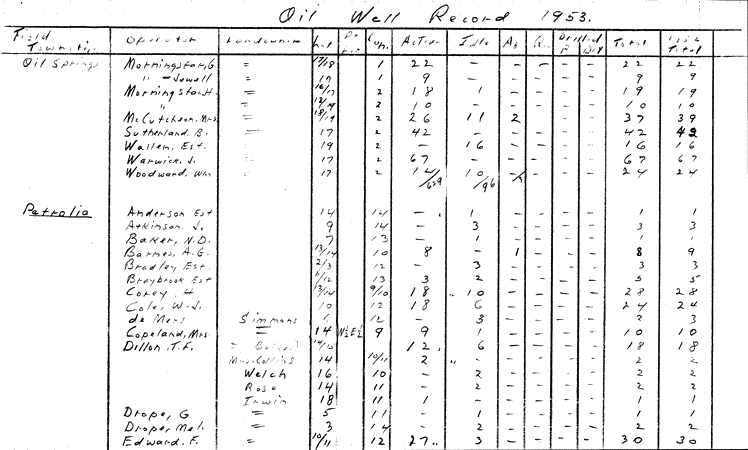 Oil Well Record 1953.
Field Township Operator Landowner Lot Con. Active Idle Ab Drilled P Dry Total 1952 Total
Oil Springs Morningstar, G = 17/18 1 22 — — — — — 22 22
" - Jewell = 17 1 9 — — — — — 9 9
Morningstar, H = 16/17 2 18 1 — — — — 19 19
" = 18/19 2 10 — — — — — 10 10
McCutcheon, Mrs. = 18/19 2 26 11 2 — — — 37 39
Sutherland, B. = 17 2 42 — — — — — 42 42
Wallen, Est. = 19 2 — 16 — — — — 16 16
Warwick, J. = 17 2 67 — — — — — 67 67
Woodward, Wm = 17 2 14/639 10/96 — — — 24 24
Petrolia Anderson Est 14 14 — 1 — — — — 1 1
Atkinson, J. 9 14 — 3 — — — — 3 3
Baker, N.D. 7 13 — 1 — — — — 1 1
Barnes, A.G. 13/14 10 8 — 1 — — — 8 9
Bradley Est. 2/3 12 — 3 — — — — 3 3
Braybrook Est 11/12 13 3 2 — — — — 5 5
Corey, H 13/14 9/10 18 10 — — — — 28 28
Cole, W.J. 10 12 18 6 — — — — 24 24
de Mers Simmons 12 — 3 — — — — 3 3
Copeland, Mrs. = 14 N½E½ 9 9 1 — — — — 10 10
Dillon, T.F. = 14/15 12 6 — — — — 18 18
Mrs. Collins 14 10/11 2 — — — — 2 2
Welch 16 10 — 2 — — — — 2 2
Rose 14 11 — 2 — — — — 2 2
Irwin 18 11 1 — — — — — 1 1
Drope, G = 5 11 — 1 — — — — 1 1
Droper, Mel. = 3 14 — 2 — — — — 2 2
Edward, F. = 10/11 12 27 3 — — — — 30 30